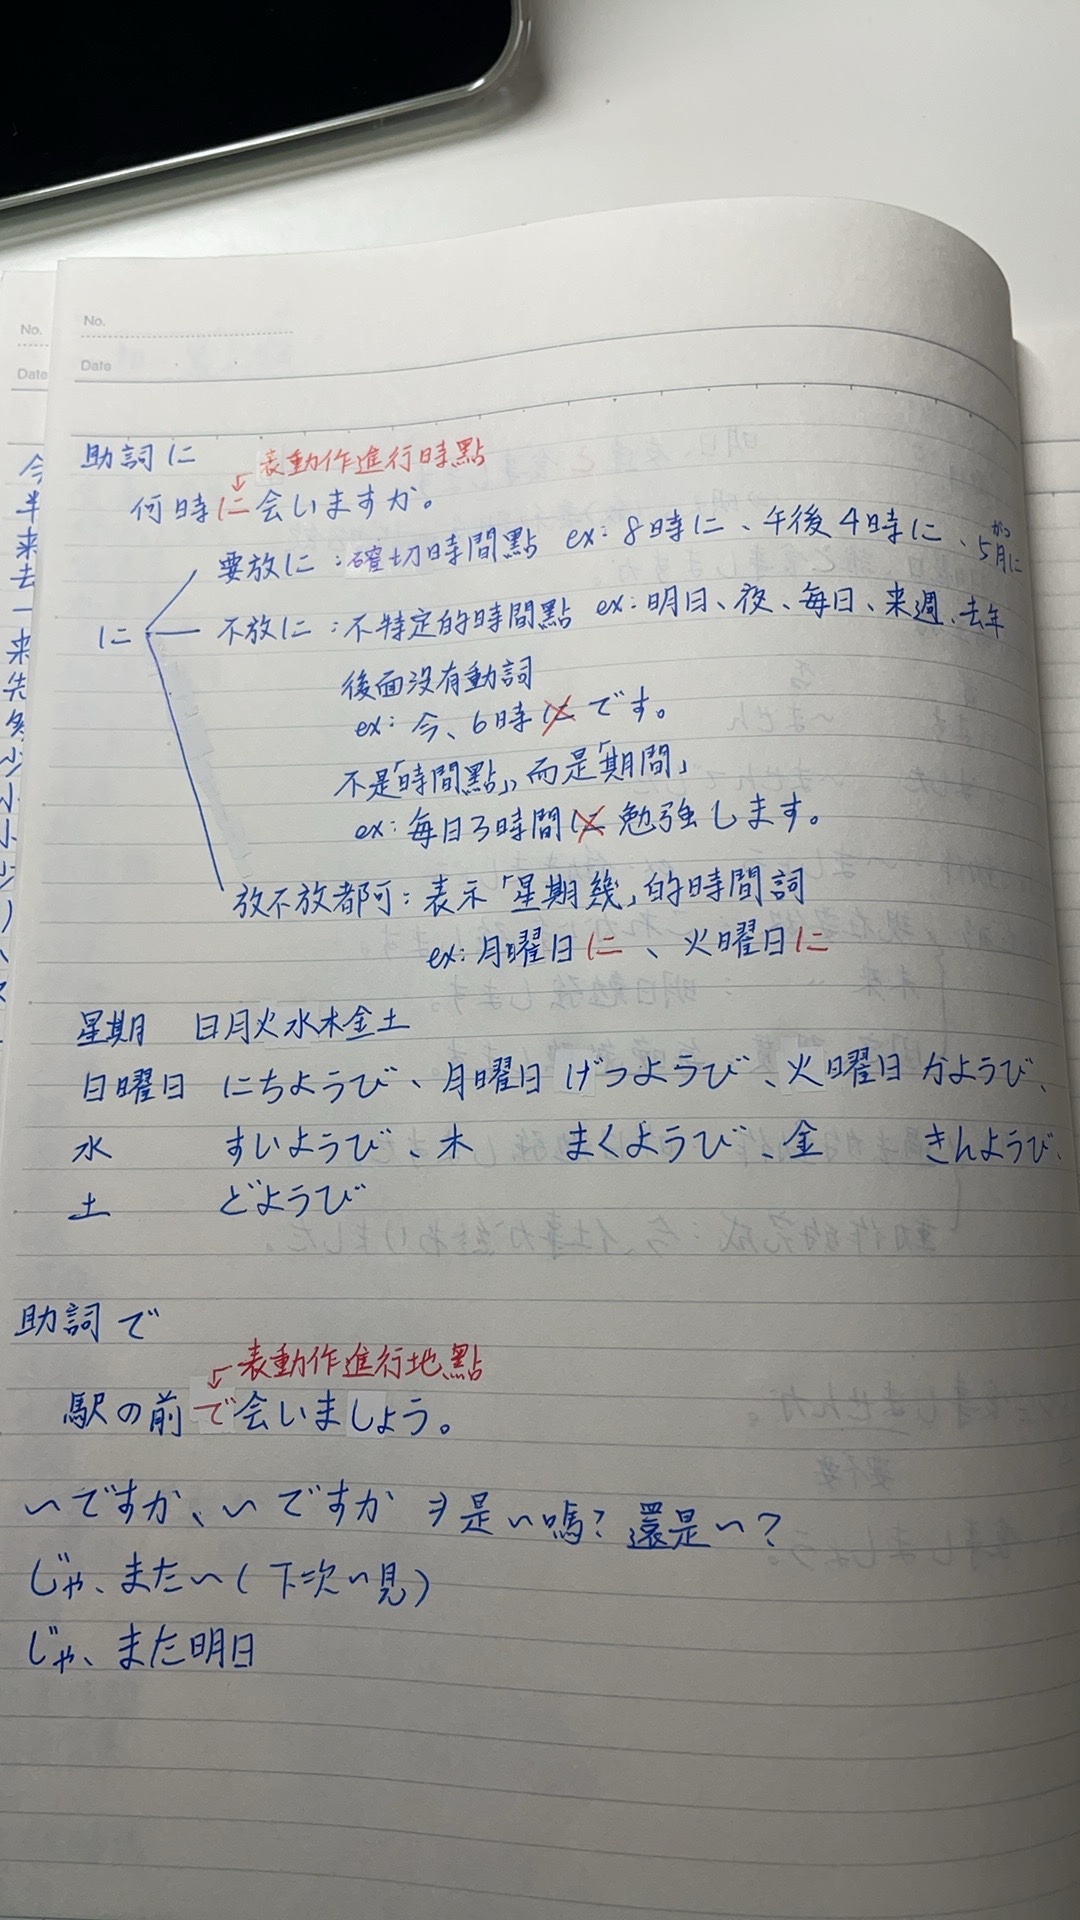 No.
Date
No.
Date
今
半
来
去
一
来
先
助詞に
表動作進行時點
何時に会いますか。
要放に：確切時間點 ex：8時に、午後4時に、5月に
がつ
に
不放に：不特定的時間點 ex：明日、夜、毎日、来週、去年
後面没有動詞
ex：今、6時にです。
不是「時間點」，而是「期間」
ex：毎日3時間に勉強します。
放不放都可：表示「星期幾」的時間詞
ex：月曜日に、火曜日に
星期 日月火水木金土
日曜日 にちようび、月曜日 げつようび、火曜日 かようび、
水 すいようび、木 まくようび、金 きんようび、
土 どようび
助詞で
表動作進行地點
駅の前で会いましょう。
～ですか、～ですか ヲ是～嗎？還是～？
じゃ、また～（下次～見）
じゃ、また明日